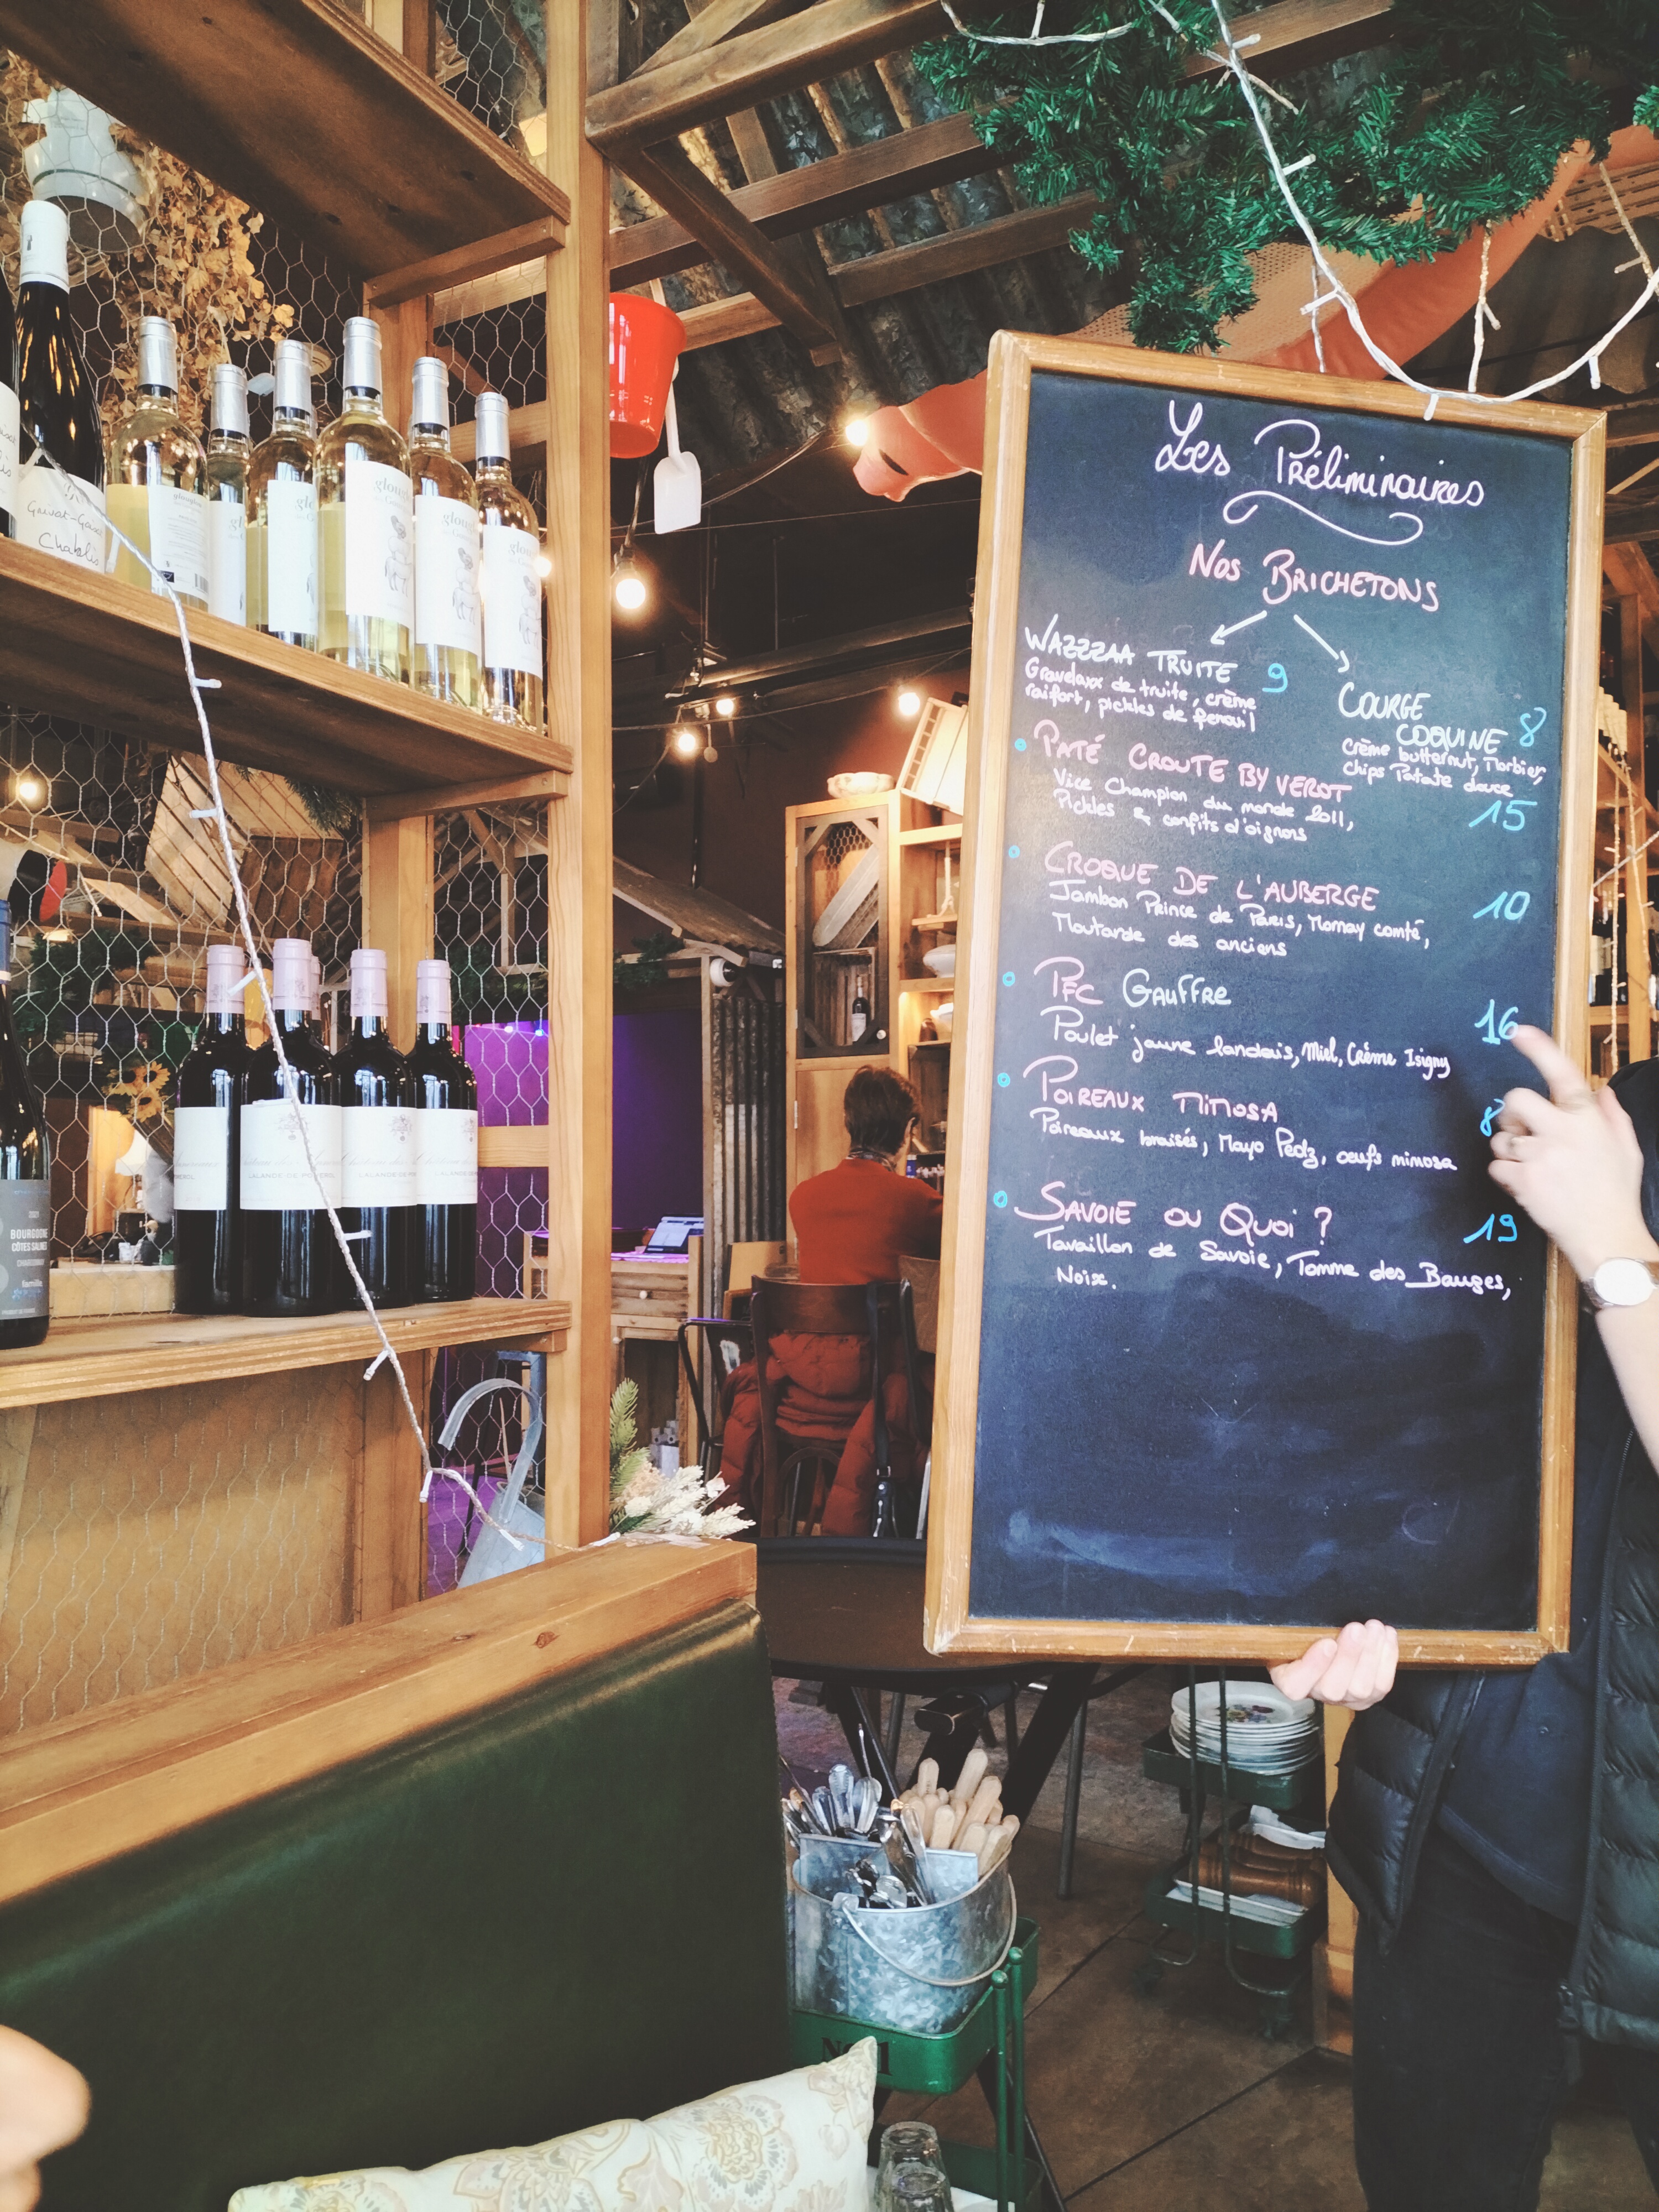 Les Préliminaires
Nos BRICHETONS
WAZZZAA TRUITE 9
Gravelaxx de truite, crème
raifort, pickles de fenouil
COURGE
COQUINE 8
Crème butternut, Morbier,
chips Patate douce
PATÉ CROUTE BY VEROT 15
Vice Champion du monde 2011,
Pickles & confits d'oignons
CROQUE DE L'AUBERGE 10
Jambon Prince de Paris, Mornay comté,
Moutarde des anciens
PFC GAUFFRE 16
Poulet jaune landais, Miel, Crème Isigny
POIREAUX MIMOSA 8
Poireaux braisés, Mayo Pedz, oeufs mimosa
SAVOIE OU QUOI ? 19
Tavaillon de Savoie, Tomme des Bauges,
Noix.
Chablis
glouglou
LALANDE-DE-POMEROL
2021
BOURGOGNE
CÔTES SALINES
CHARDONNAY
famille